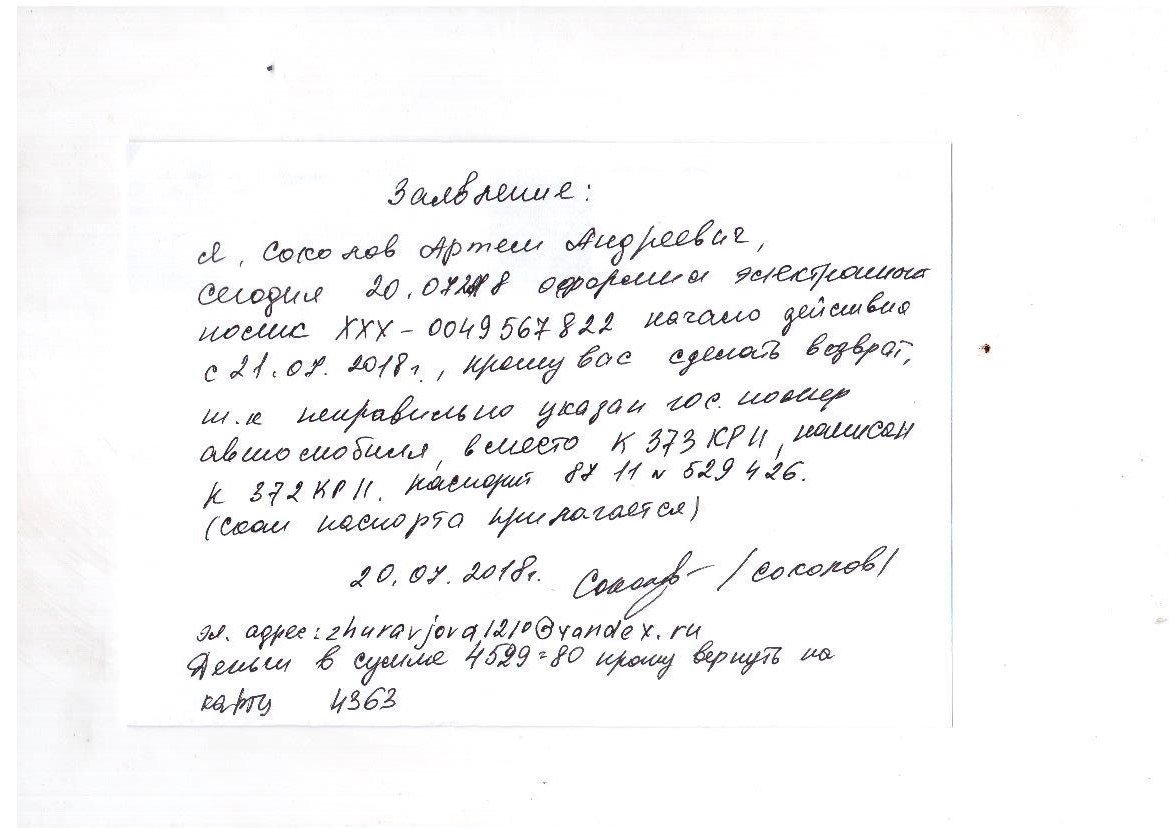 Заявление:
Я, Соколов Артем Андреевич,
сегодня 20.07.2018 оформил электронный
полис ХХХ - 0049567822 начало действия
с 21.07.2018г., прошу вас сделать возврат,
т.к неправильно указан гос. номер
автомобиля, вместо К 373 КР 11, написан
К 372 КР 11. паспорт 87 11 № 529 426.
(скан паспорта прилагается)
20.07.2018г. Соколов /Соколов/
эл. адрес: zhuravjova1210@yandex.ru
Деньги в сумме 4529=80 прошу вернуть на
карту 4363